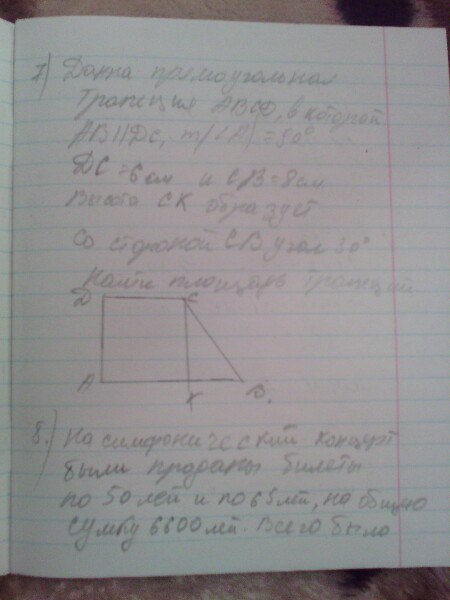 7) Данна прямоугольная
трапеция ABCD, в которой
AB||DC, m(∠A)=90°
DC=6см и CB=8см
Высота CK образует
со стороной CB угол 30°
Найти площадь трапеции
D C
A K B.
8.) На симфонический концерт
были проданы билеты
по 50 лей и по 65 лей, на общую
сумму 6600 лей. Всего было